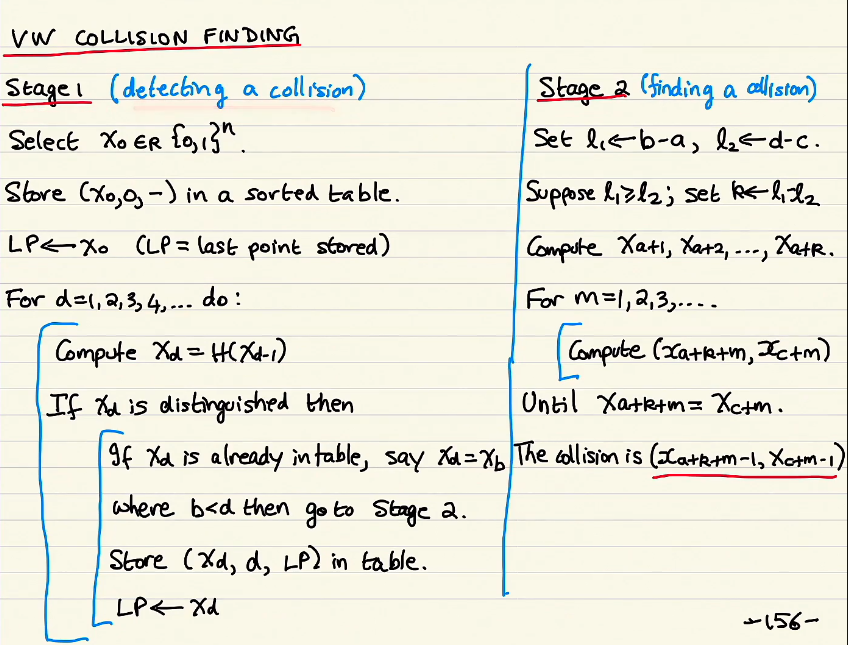 VW COLLISION FINDING
Stage 1 (detecting a collision)
Select x₀ ∈R {0,1}ⁿ.
Store (x₀,0,-) in a sorted table.
LP ← x₀ (LP = last point stored)
For d=1,2,3,4,... do:
Compute x_d = H(x_d-1)
If x_d is distinguished then
If x_d is already in table, say x_d = x_b
where b<d then go to Stage 2.
Store (x_d, d, LP) in table.
LP ← x_d
Stage 2 (finding a collision)
Set l₁ ← b-a, l₂ ← d-c.
Suppose l₁ ≥ l₂; set k ← l₁-l₂
Compute x_a+1, x_a+2, ..., x_a+k.
For m=1,2,3,....
Compute (x_a+k+m, x_c+m)
Until x_a+k+m = x_c+m.
The collision is (x_a+k+m-1, x_c+m-1)
-156-